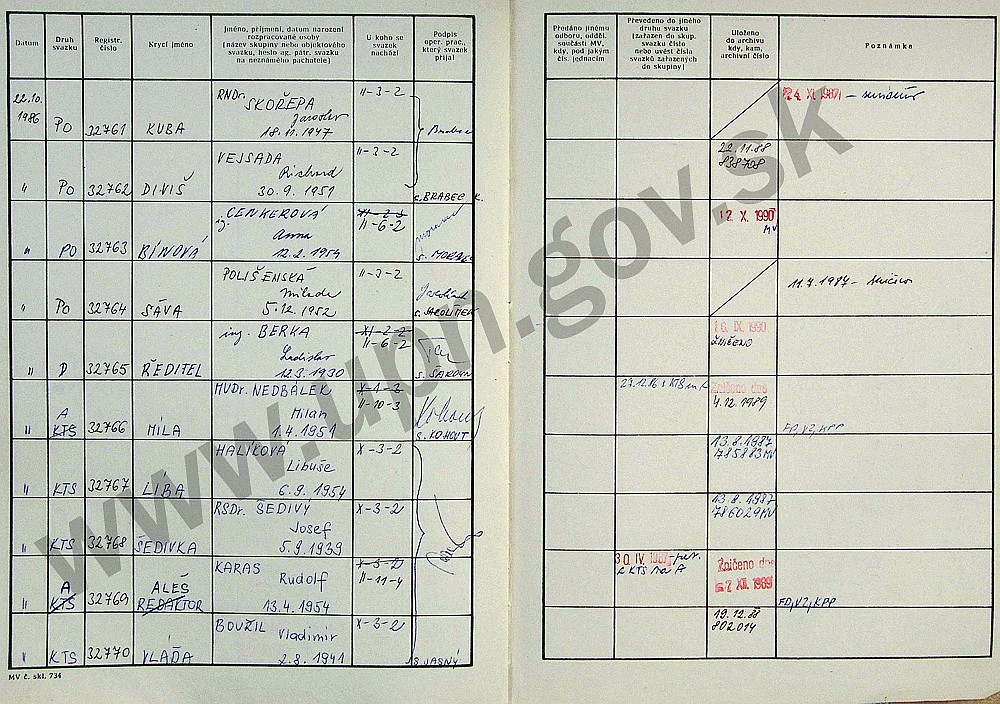 Datum
Druh svazku
Registr. číslo
Krycí jméno
Jméno, příjmení, datum narození rozpracované osoby (název skupiny nebo objektového svazku, heslo ag. pátr. svazku na neznámého pachatele)
U koho se svazek nachází
Podpis oper. prac., který svazek přijal
Předáno jinému odboru, odděl. součásti MV, kdy, pod jakým čís. jednacím
Převedeno do jiného druhu svazku (zařazen do skup. svazku číslo nebo uvést čísla svazků zařazených do skupiny)
Uloženo do archivu kdy, kam, archivní číslo
Poznámka
22.10. 1986 PO 32761 KUBA RNDr. SKOŘEPA Jaroslav 18.11.1947 II-3-2
24 XI. 1987
" PO 32762 DIVIŠ VEJSADA Richard 30.9.1951 II-3-2 s. BRABEC K.
22.11.88 838708
" PO 32763 BÍNOVÁ ing. CENKEROVÁ Anna 12.2.1954 II-6-2
12 X. 1990 MV
" PO 32764 SÁVA POLIŠENSKÁ Milada 5.12.1952 II-3-2
11.4.1987
" D 32765 ŘEDITEL ing. BERKA Ladislav 12.3.1930 XI-2-2 II-6-2
16. IX. 1990 ZNIČENO
" A KTS 32766 MÍLA MVDr. NEDBÁLEK Milan 1.4.1951 II-10-3 s. KOHOUT
Zničeno dne 4.12.1989 FD,VZ,KPP
" KTS 32767 LÍBA HALÍKOVÁ Libuše 6.9.1954 X-3-2
13.8.1987 785883 MV
" KTS 32768 ŠEDIVKA RSDr. ŠEDIVÝ Josef 5.9.1939 X-3-2
13.8.1987 786029 MV
" A KTS 32769 ALEŠ REDAKTOR KARAS Rudolf 13.4.1954 X-3-2 II-11-4
30. IV. 1987 z KTS na A Zničeno dne -7. XII. 1989 FD,VZ,KPP
" KTS 32770 VLÁĎA BOUŽIL Vladimír 2.8.1941 X-3-2 s. JASNÝ
19.12.88 802014
MV č. skl. 734
www.upn.gov.sk